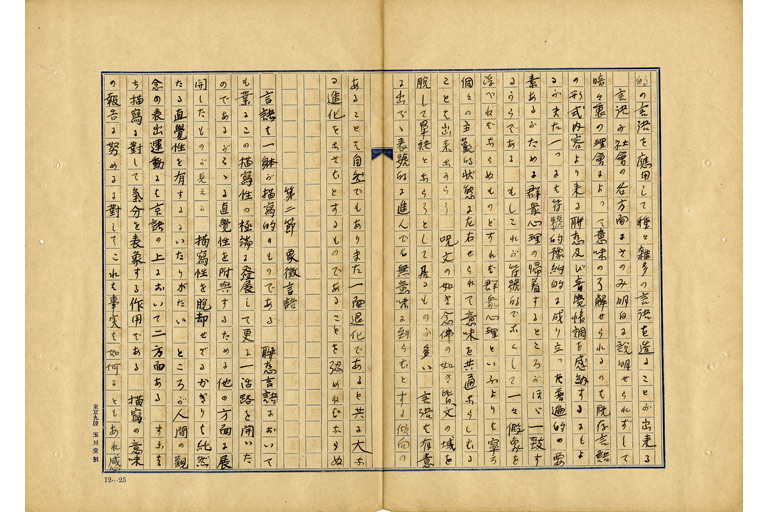 的の言語を應用して種々雑多の言語を造ることが出来る
言語が社會の各方面にさのみ明白に説明せられずして
暗々裏の理會によって意味の了解せられるのも既存言語
の形式内容より来る聯想及び音覺情調を感納するにもよ
るがまた一つには符號的豫納的に成り立つた普遍的の要
素あるがためで群衆心理の帰着するところがほゞ一致す
るからである もしこれが符號的でなくして一々假象を
浮べねばならぬものとすれば群衆心理といふよりも寧ろ
個々の主觀的状態に左右せられて意味を共通ならしむる
ことも出来なからう 呪文の如き念佛の如き皆文の域を
脱して單語とならうとして居るものが多い 言語は有意
に出でゝ表號的に進んでも無意味に到らむとする傾向の
あることも自然でもありまた一面退化であると共に大な
る進化をなさむとするものであることを認めねばならぬ
第二節 象徴言語
言語は一體が描寫的のものである 聯想言語において
も董るこの描寫性の極端に發展して更に一活路を開いた
のであるがゝる直覺性を附與するために他の方面に展
開したものが見える 描寫性を脱却せでるかぎりは純然
たる直覺性を有するにいたりがたい ところが人間の觀
念の表出運動は言語の上において二方面ある すなは
ち描寫に對して氣分を表象する作用である 描寫の意味
の報告に努めるに對してこれは事實は如何にともあれ感
東京九段 玉川堂製
12—25